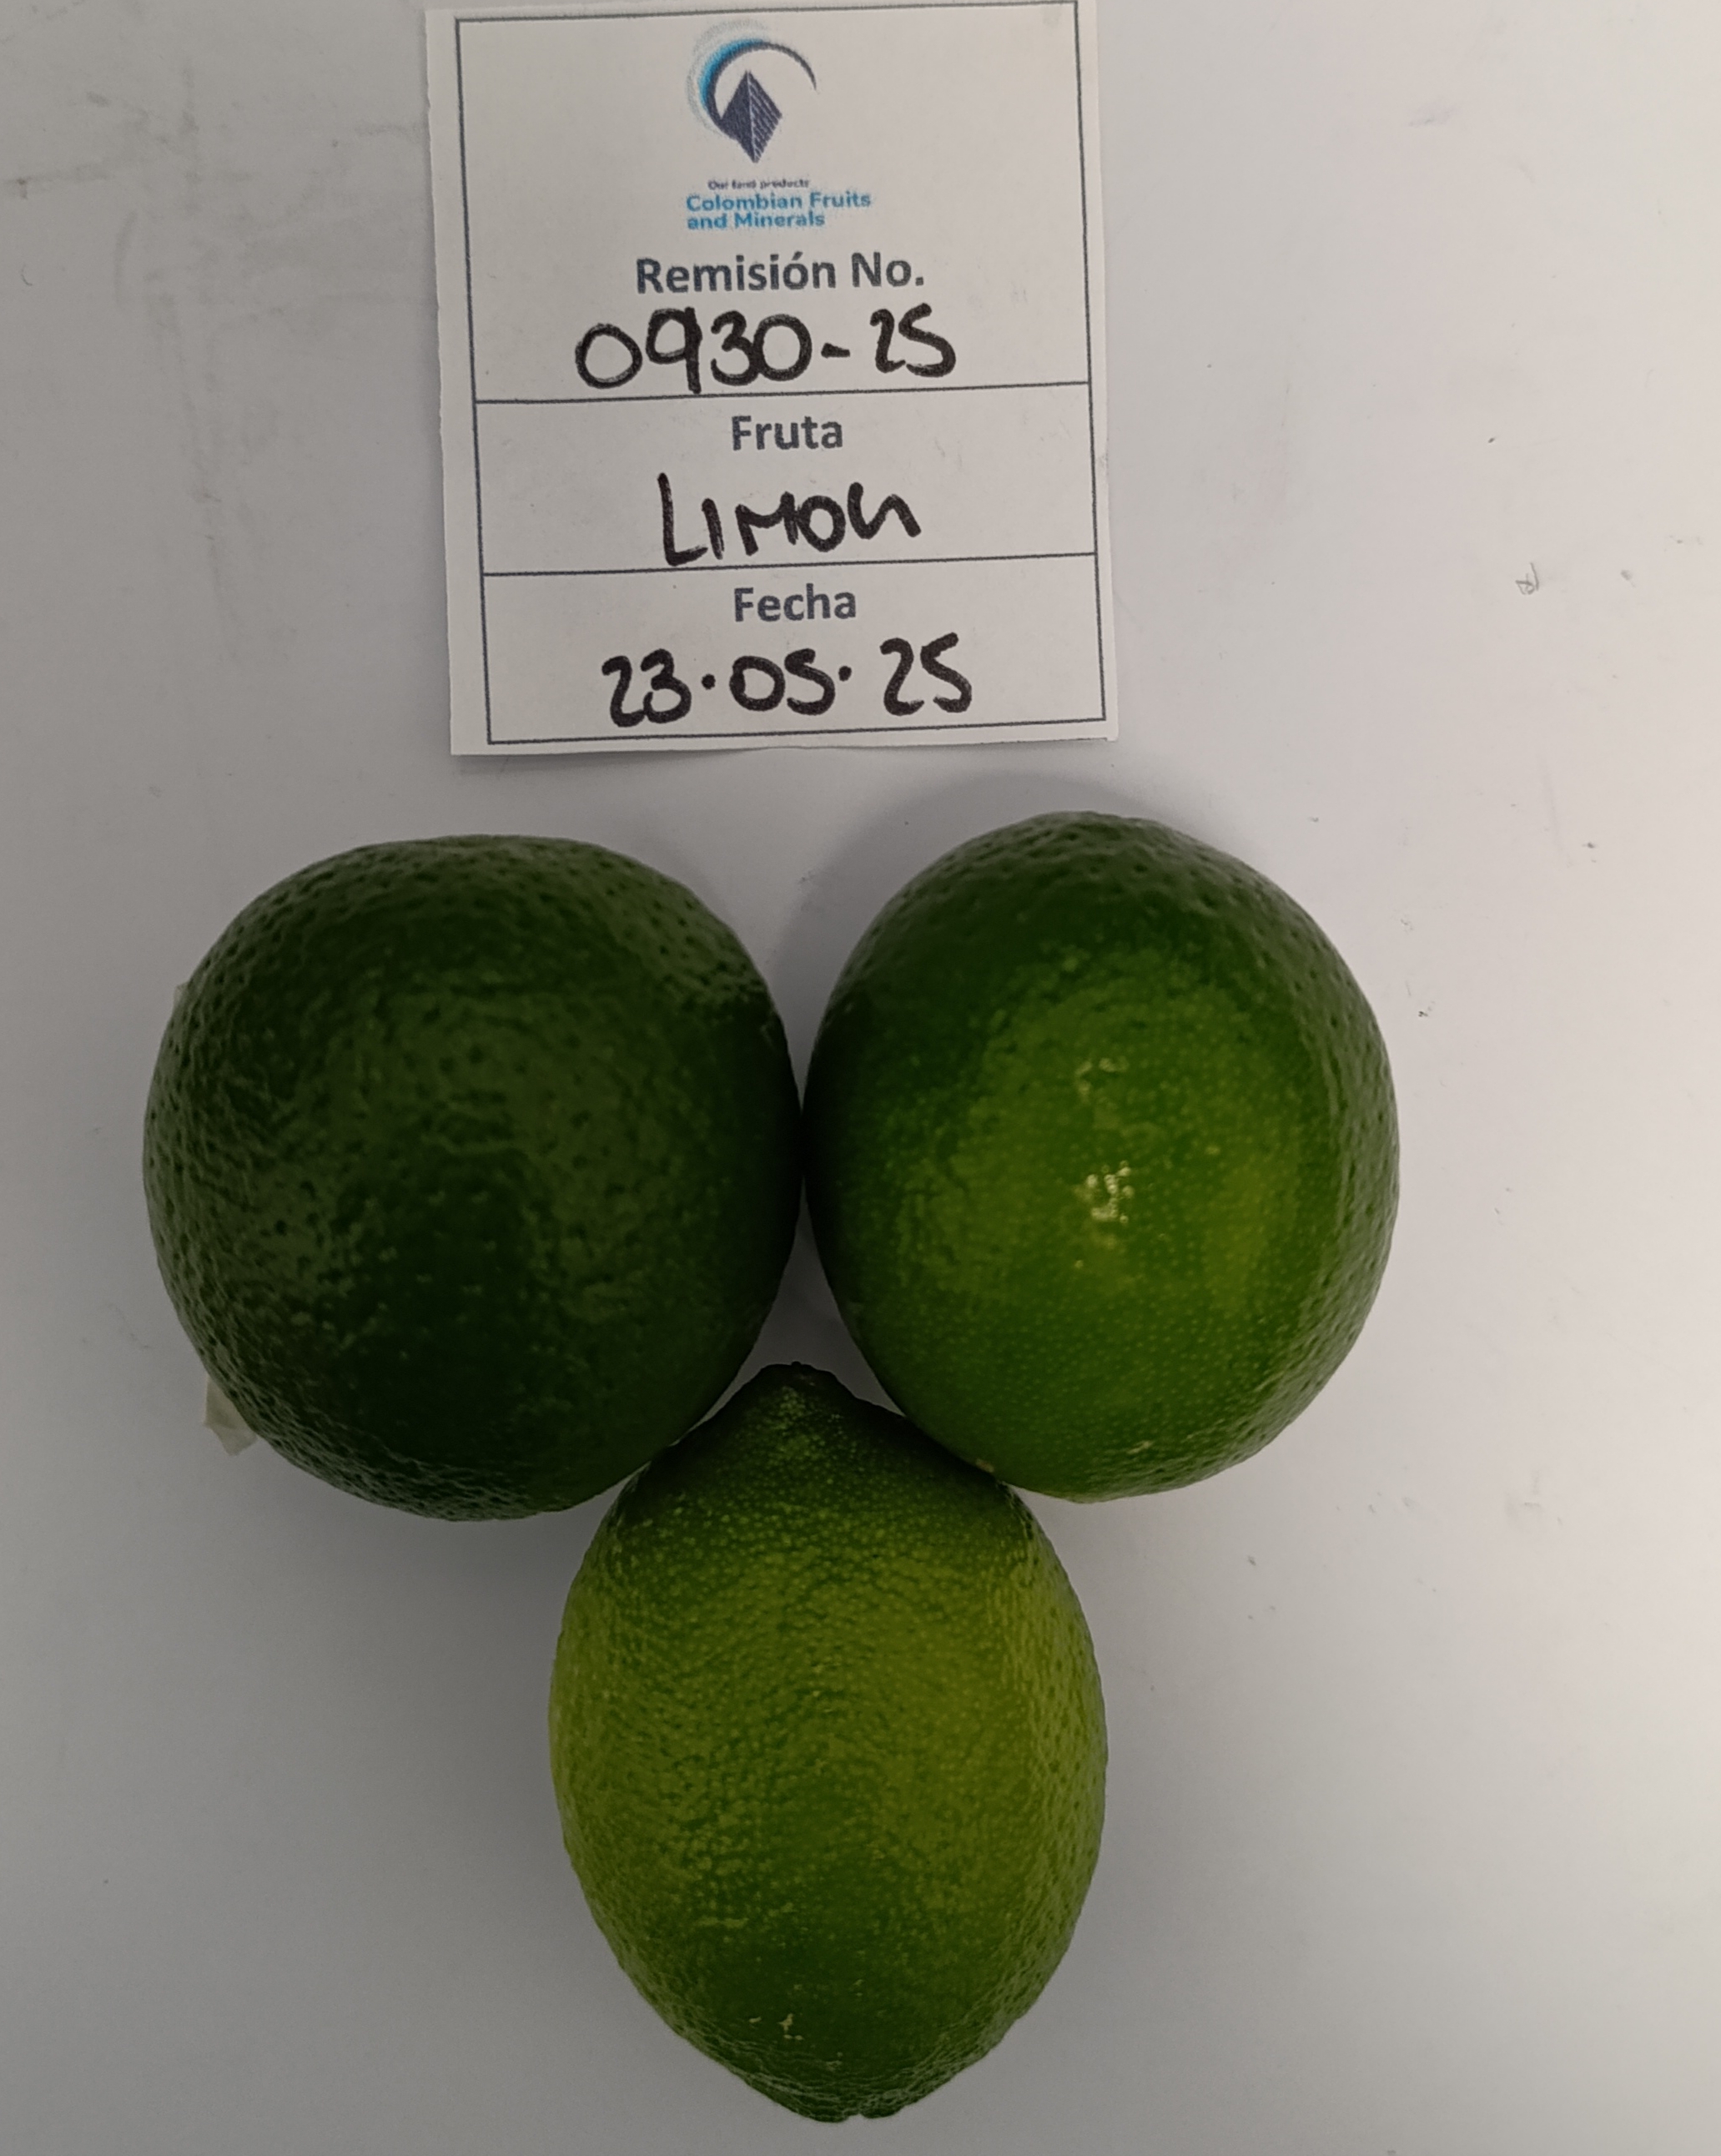 Our land products
Colombian Fruits
and Minerals
Remisión No.
0930-25
Fruta
LIMON
Fecha
23.05.25